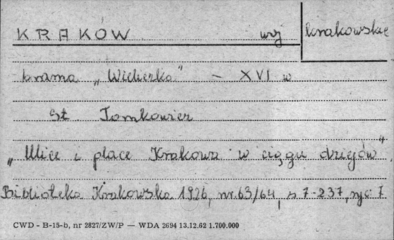 KRAKÓW woj krakowskie
brama „Wiślna” – XVI w
St Tomkowicz
„Ulice i place Krakowa w ciągu dziejów”
Biblioteka Krakowska 1926, nr. 63/64, s 7-237, ryc 7
CWD - B-15-b, nr 2827/ZW/P — WDA 2694 13.12.62 1.700.000